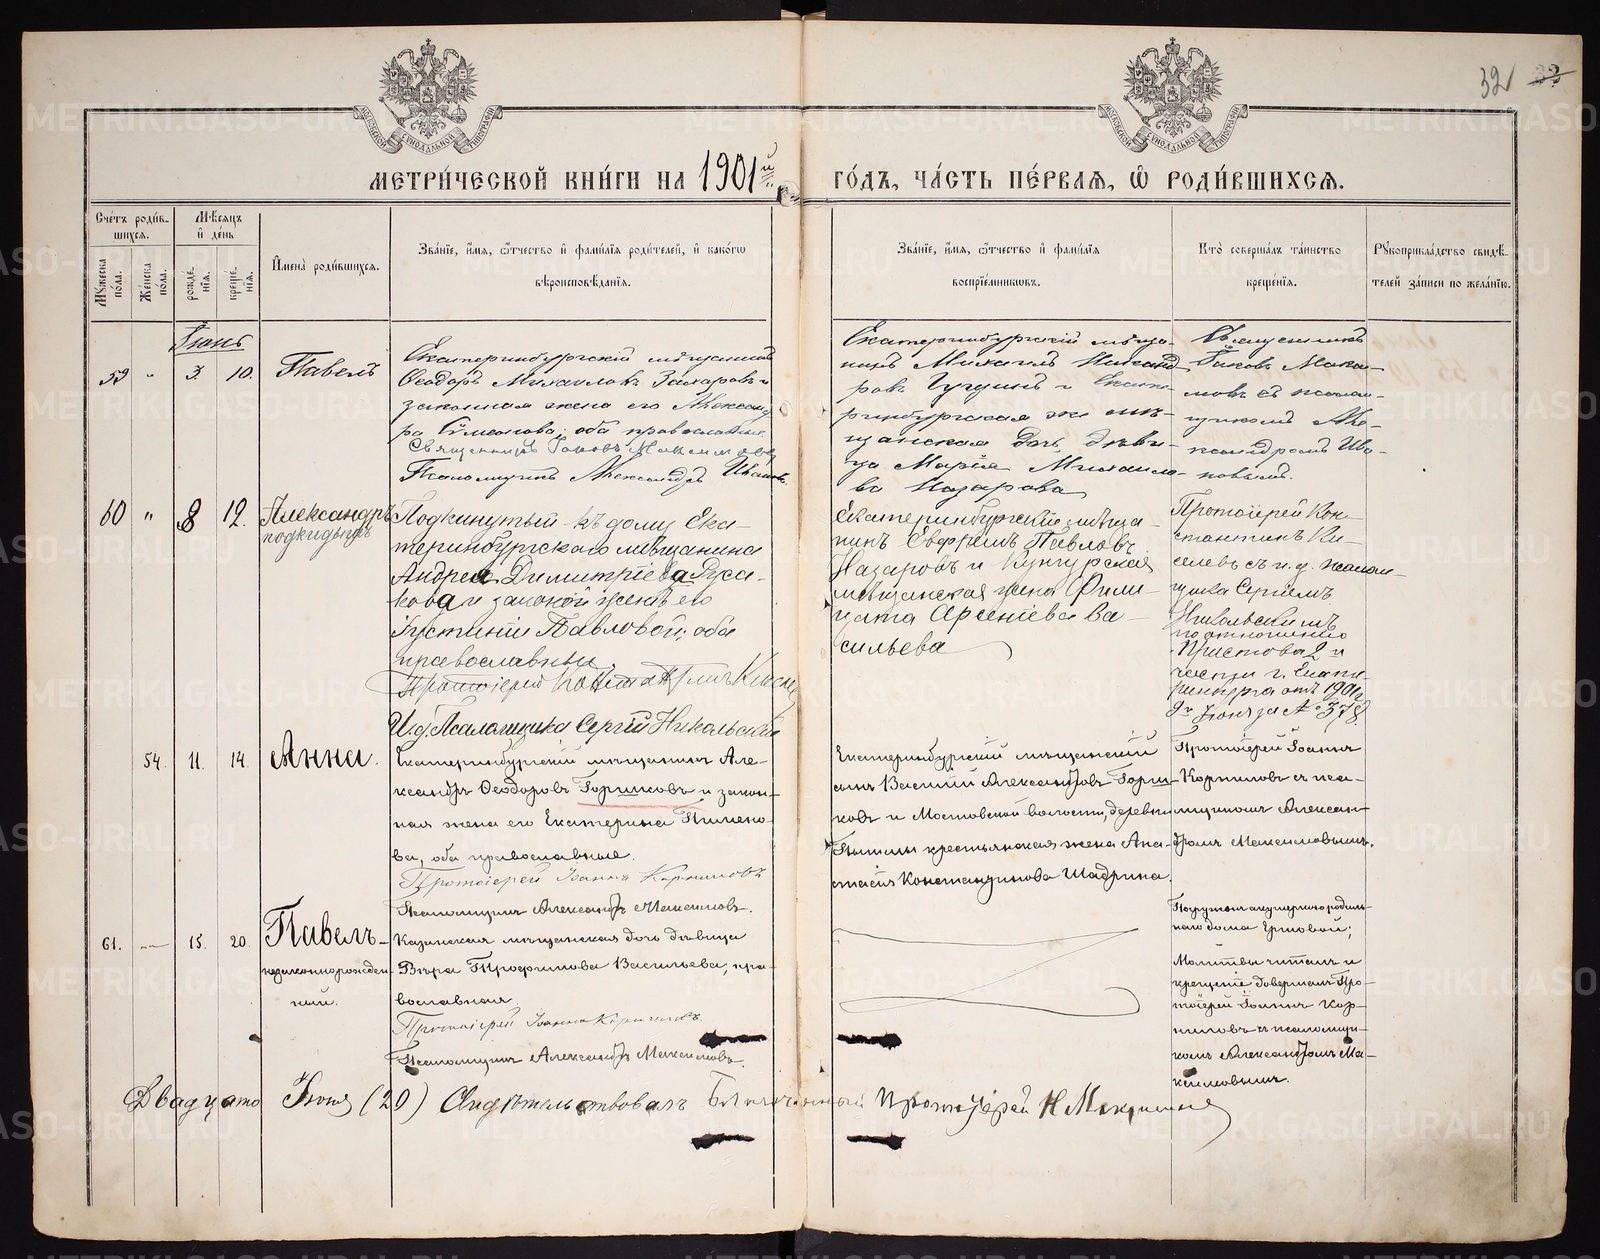 32 32
МЕТРИ́ЧЕСКОЙ КНИ́ГИ НА 1901й ГО́ДЪ, ЧА́СТЬ ПЕ́РВАѦ, Ѡ РОДИ́ВШИХСѦ.
Сче́тъ роди́в-
шихся.
Мѣ́сяцъ
и де́нь
Му́жеска по́ла.
Же́нска по́ла.
рожде́-
нія.
креще́-
нія.
Имена̀ роди́вшихся.
Зва́ніе, и́мя, ѻ́тчество и фами́лія роди́телей, и како́гѡ
вѣроисповѣ́данія.
Зва́ніе, и́мя, ѻ́тчество и фами́лія
воспріе́мниковъ.
Кто̀ соверша́лъ та́инство
креще́нія.
Рꙋкоприкла́дство свидѣ́-
телей за́писи по жела́нію.
Іюнь
59 " 3. 10. Павелъ
Екатеринбургскій мѣщанинъ
Ѳеодоръ Михаиловъ Захаровъ и
законная жена его Александ
ра Симеонова; оба православные.
Священникъ Іаковъ
Псаломщикъ Александръ Ивановъ.
Екатеринбургскій мѣща-
нинъ Михаилъ Никанд
ровъ и Екате-
ринбургская же мѣ-
щанская дочь дѣви-
ца Марія Михаило-
ва Назарова
Священникъ
Іаковъ
съ псалом-
щикомъ Але-
ксандромъ Ива-
новымъ.
60 " 8 12. Александръ
подкидышъ
Подкинутый къ дому Ека-
теринбургскаго мѣщанина
Андрея Димитріева Руса-
кова и законой женѣ его
Іустиніи Павловой; оба
православны.
Протоіерей Константинъ
И. д. Псаломщика Сергій Никольскій
Екатеринбургскій мѣща-
нинъ Евфимъ Павловъ
Назаровъ и Кунгурская
мѣщанская жена Фили-
цата Арсеніева Ва-
сильева
Протоіерей Кон-
стантинъ
съ и. д. псалом-
щика Сергіемъ
Никольскимъ
по отношенію
Пристова 2й
части г. Екате-
ринбурга отъ 1901 г.
9го Іюня за № 378.
54. 11. 14. Анна.
Екатеринбургскій мѣщанинъ Але-
ксандръ Ѳеодоровъ Горшковъ и закон-
ная жена его Екатерина Пимено-
ва, оба православные.
Протоіерей Іоаннъ Корниловъ
Псаломщикъ Александръ Максимовъ.
Екатеринбургскій мѣщанскій
сынъ Василій Александровъ Горш-
ковъ и Мостовской волости, деревни
крестьянская жена Ана-
стасія Константинова Шадрина.
Протоіерей Іоаннъ
Корниловъ съ пса-
ломщикомъ Алексан-
дромъ Максимовымъ.
61. — 15. 20. Павелъ
незаконнорожден-
ный.
Казанская мѣщанская дочь дѣвица
Вѣра Трофимова Васильева, пра-
вославная
Протоіерей Іоаннъ Корниловъ.
Псаломщикъ Александръ Максимовъ.
Погруженъ акушеркою родиль-
наго дома Ершовой;
Молитвы читалъ и
крещеніе довершилъ Про-
тоіерей Іоаннъ Кор-
ниловъ съ псаломщи-
комъ Александромъ Ма-
ксимовымъ.
Двадцато Іюня (20) Свидѣтельствовалъ Благочинный Протоіерей Н